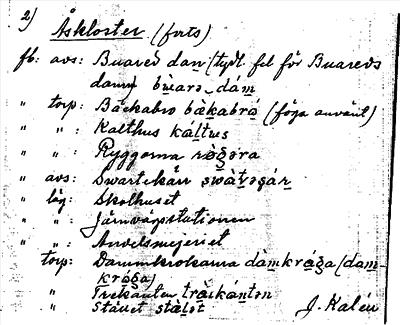 2) Åskloster (forts)
fb: avs: Buared dam (tydl. fel för Buareds
damm) bùarə-dàm
" torp: Backabro bàkabrò (föga använt)
" " : Kalthus káltus
" " : Ryggorna
" avs: Svartekärr
" låg: Skolhuset
" " : Järnvägsstationen
" " : Andelsmejeriet
torp: Dammkrokarna dàmkråga (dam-
kråga)
" Trekanten tràikánton
" Stället J. Kalén